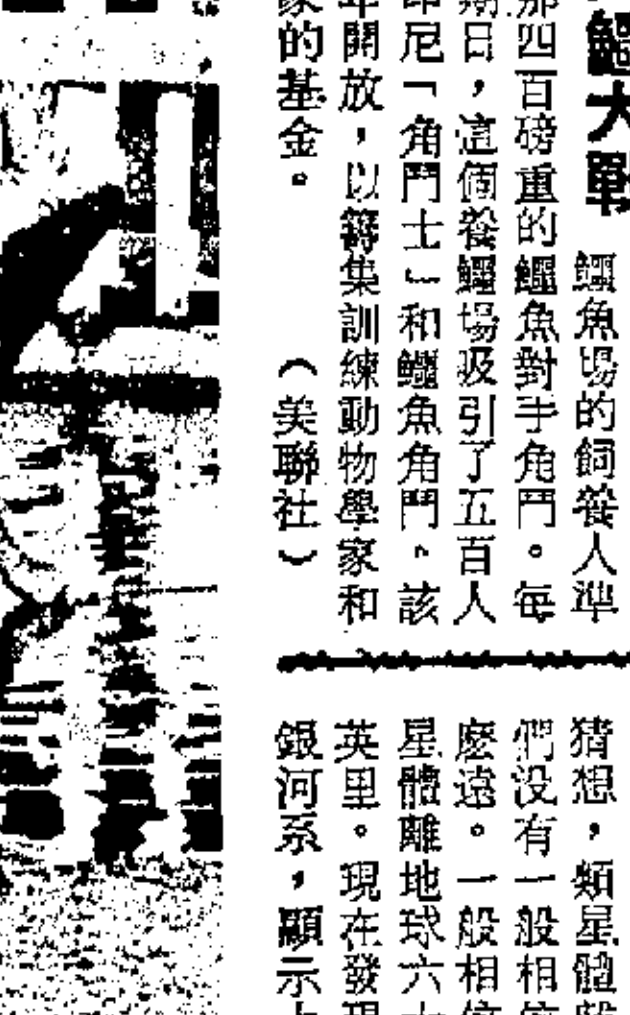 鱷大戰
鱷魚場的飼養人準
那四百磅重的鱷魚對手角鬥。每
期日，這個養鱷場吸引了五百人
印尼「角鬥士」和鱷魚角鬥。該
年開放，以籌集訓練動物學家和
家的基金。
（美聯社）
猜想，類星體離
們没有一般相信
麽遠。一般相信
星體離地球六十
英里。現在發現
銀河系，顯示